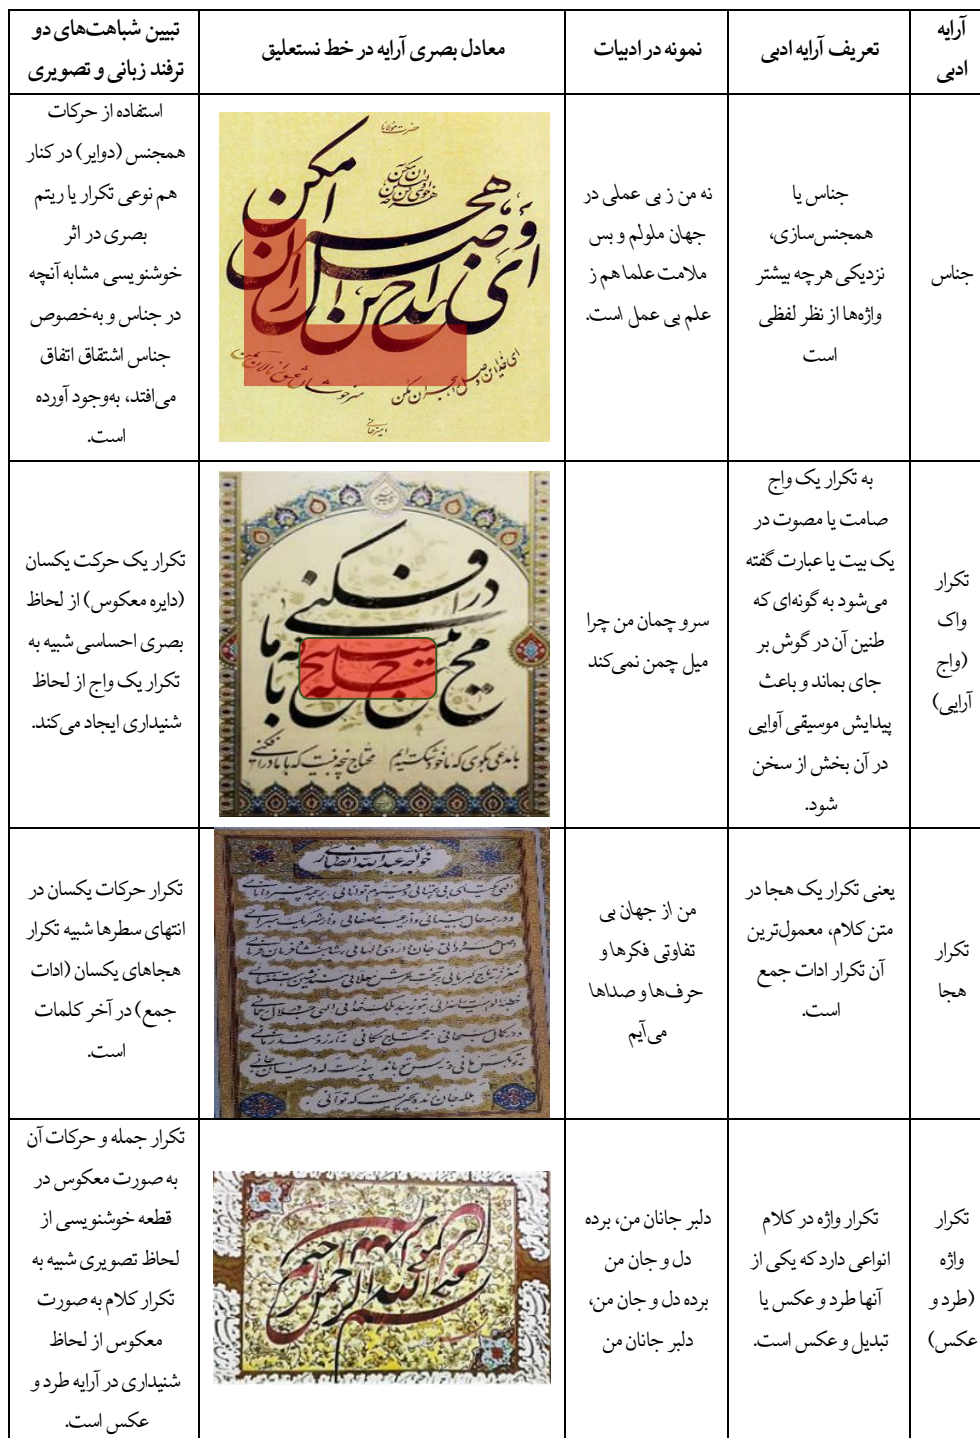 آرایه
ادبی
تعریف آرایه ادبی
نمونه در ادبیات
معادل بصری آرایه در خط نستعلیق
تبیین شباهت‌های دو
ترفند زبانی و تصویری
جناس
جناس یا
همجنس‌سازی،
نزدیکی هرچه بیشتر
واژه‌ها از نظر لفظی
است
نه من ز بی عملی در
جهان ملولم و بس
ملامت علما هم ز
علم بی عمل است.
حضرت مولانا
ای خدا این وصل را هجران مکن
سرخوشان عشق را نالان مکن
استفاده از حرکات
همجنس (دوایر) در کنار
هم نوعی تکرار یا ریتم
بصری در اثر
خوشنویسی مشابه آنچه
در جناس و به‌خصوص
جناس اشتقاق اتفاق
می‌افتد، به‌وجود آورده
است.
تکرار
واک
(واج
آرایی)
به تکرار یک واج
صامت یا مصوت در
یک بیت یا عبارت گفته
می‌شود به گونه‌ای که
طنین آن در گوش بر
جای بماند و باعث
پیدایش موسیقی آوایی
در آن بخش از سخن
شود.
سرو چمان من چرا
میل چمن نمی‌کند
با مدعی بگوی که ما خود شکسته‌ایم
محتاج نیست که با ما در افکنی
تکرار یک حرکت یکسان
(دایره معکوس) از لحاظ
بصری احساسی شبیه به
تکرار یک واج از لحاظ
شنیداری ایجاد می‌کند.
تکرار
هجا
یعنی تکرار یک هجا در
متن کلام، معمول‌ترین
آن تکرار ادات جمع
است.
من از جهان بی
تفاوتی فکرها و
حرف‌ها و صداها
می‌آیم
خواجه عبدالله انصاری
تکرار حرکات یکسان در
انتهای سطرها شبیه تکرار
هجاهای یکسان (ادات
جمع) در آخر کلمات
است.
تکرار
واژه
(طرد و
عکس)
تکرار واژه در کلام
انواعی دارد که یکی از
آنها طرد و عکس یا
تبدیل و عکس است.
دلبر جانان من، برده
دل و جان من
برده دل و جان من،
دلبر جانان من
بسم الله الرحمن الرحیم
تکرار جمله و حرکات آن
به صورت معکوس در
قطعه خوشنویسی از
لحاظ تصویری شبیه به
تکرار کلام به صورت
معکوس از لحاظ
شنیداری در آرایه طرد و
عکس است.